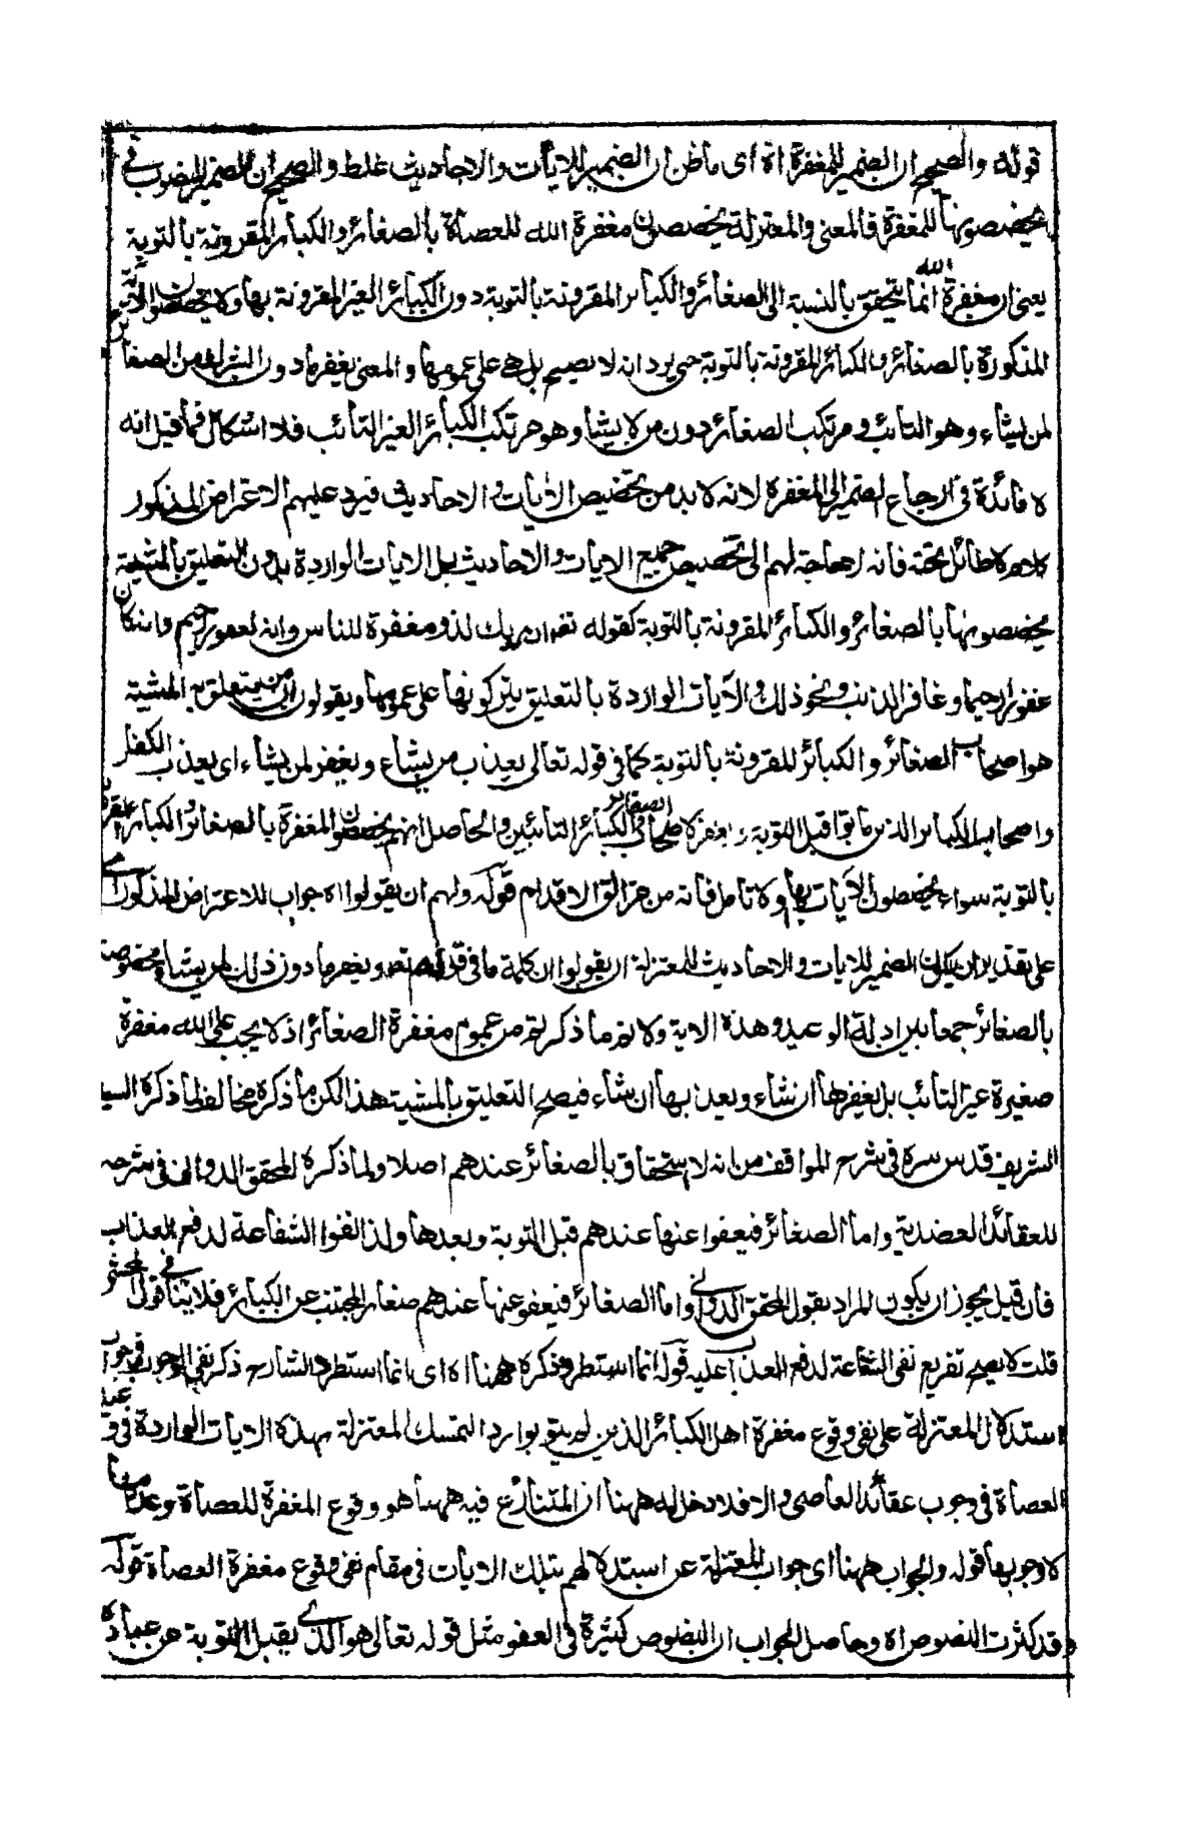 قوله والصحيح ان الضمير للمغفرة اه اى ما ظن ان الضمير للايات والاحاديث غلط والصحيح ان الضمير المنصوب فى
يخصصونها للمغفرة فالمعنى والمعتزلة يخصصون مغفرة الله للعصاة بالصغائر والكبائر المقرونة بالتوبة
يعنى ان مغفرة الله انما يتحقق بالنسبة الى الصغائر والكبائر المقرونة بالتوبة دون الكبائر الغير المقرونة بها ولا يخصصون الاية
المذكورة بالصغائر والكبائر المقرونة بالتوبة حتى يرد انه لا يصح بل هى على عمومها والمعنى يغفر ما دون الشرك من الصغا
لمن يشاء وهو التائب ومرتكب الصغائر دون من لا يشاء وهو مرتكب الكبائر الغير التائب فلا اشكال فما قيل انه
لا فائدة فى ارجاع الضمير الى المغفرة لانه لا بد من تخصيص الايات والاحاديث فيرد عليهم الاعتراض المذكور
كلام لا طائل تحته فانه لا حاجة لهم الى تخصيص جميع الايات والاحاديث بل الايات الواردة بدون التعليق بالمشية
يخصصونها بالصغائر والكبائر المقرونة بالتوبة كقوله تعه ان ربك لذو مغفرة للناس وانه لغفور رحيم وانه كان
غفورا رحيما وغافر الذنب ونحو ذلك والآيات الواردة بالتعليق يتركونها على عمومها ويقولون ان من يتعلق به المشية
هو اصحاب الصغائر والكبائر المقرونة بالتوبة كما فى قوله تعالى يعذب من يشاء ويغفر لمن يشاء اى يعذب الكفار
واصحاب الكبائر الذين ماتوا قبل التوبة ويغفر لاصحاب الصغائر والكبائر التائبين والحاصل انهم يخصصون المغفرة بالصغائر والكبائر المقرونة
بالتوبة سواء يخصصون الآيات بها ولا تامل فانه من مزالق الاقدام قوله ولهم ان يقولوا اه جواب للاعتراض المذكور اى
على تقدير ان يكون الضمير للايات والاحاديث للمعتزلة ان يقولوا ان كلمة ما فى قوله تعه ويغفر ما دون ذلك لمن يشاء مخصوصة
بالصغائر جمعا بين ادلة الوعيد وهذه الاية ولا نم ما ذكرتم من عموم مغفرة الصغائر اذ لا يجب على الله مغفرة
صغيرة غير التائب بل يغفرها ان شاء ويعذب بها ان شاء فيصح التعليق بالمشية هذا لكن ما ذكره مخالف لما ذكره السيد
الشريف قدس سره فى شرح المواقف من انه لا استحقاق بالصغائر عندهم اصلا ولما ذكره المحقق الدوانى فى شرحه
للعقائد العضدية واما الصغائر فيعفوا عنها عندهم قبل التوبة وبعدها ولذا نفوا الشفاعة لدفع العذاب
فان قيل يجوز ان يكون المراد بقول المحقق الدوانى واما الصغائر فيعفو عنها عندهم صغائر المجتنب عن الكبائر فلا ينافى قول المحشى
قلت لا يصح تفريع نفى الشفاعة لدفع العذاب عليه قوله انما استطرد ذكره ههنا اه اى انما استطرد الشارح ذكر نفى الوجوب فى جواب
استدلال المعتزلة على نفى وقوع مغفرة اهل الكبائر الذين لم يتوبوا رد التمسك المعتزلة بهذه الايات الواردة فى وعيد
العصاة فى وجوب عقاب العاصى والا فلا دخل له ههنا ان المتنازع فيه ههنا هو وقوع المغفرة للعصاة وعدمها
لا وجوبها قوله والجواب ههنا اى جواب المعتزلة عن استدلالهم بتلك الايات فى مقام نفى وقوع مغفرة العصاة قوله
وقد كثرت النصوص اه وحاصل الجواب ان النصوص كثيرة فى العفو مثل قوله تعالى هو الذى يقبل التوبة عن عباده